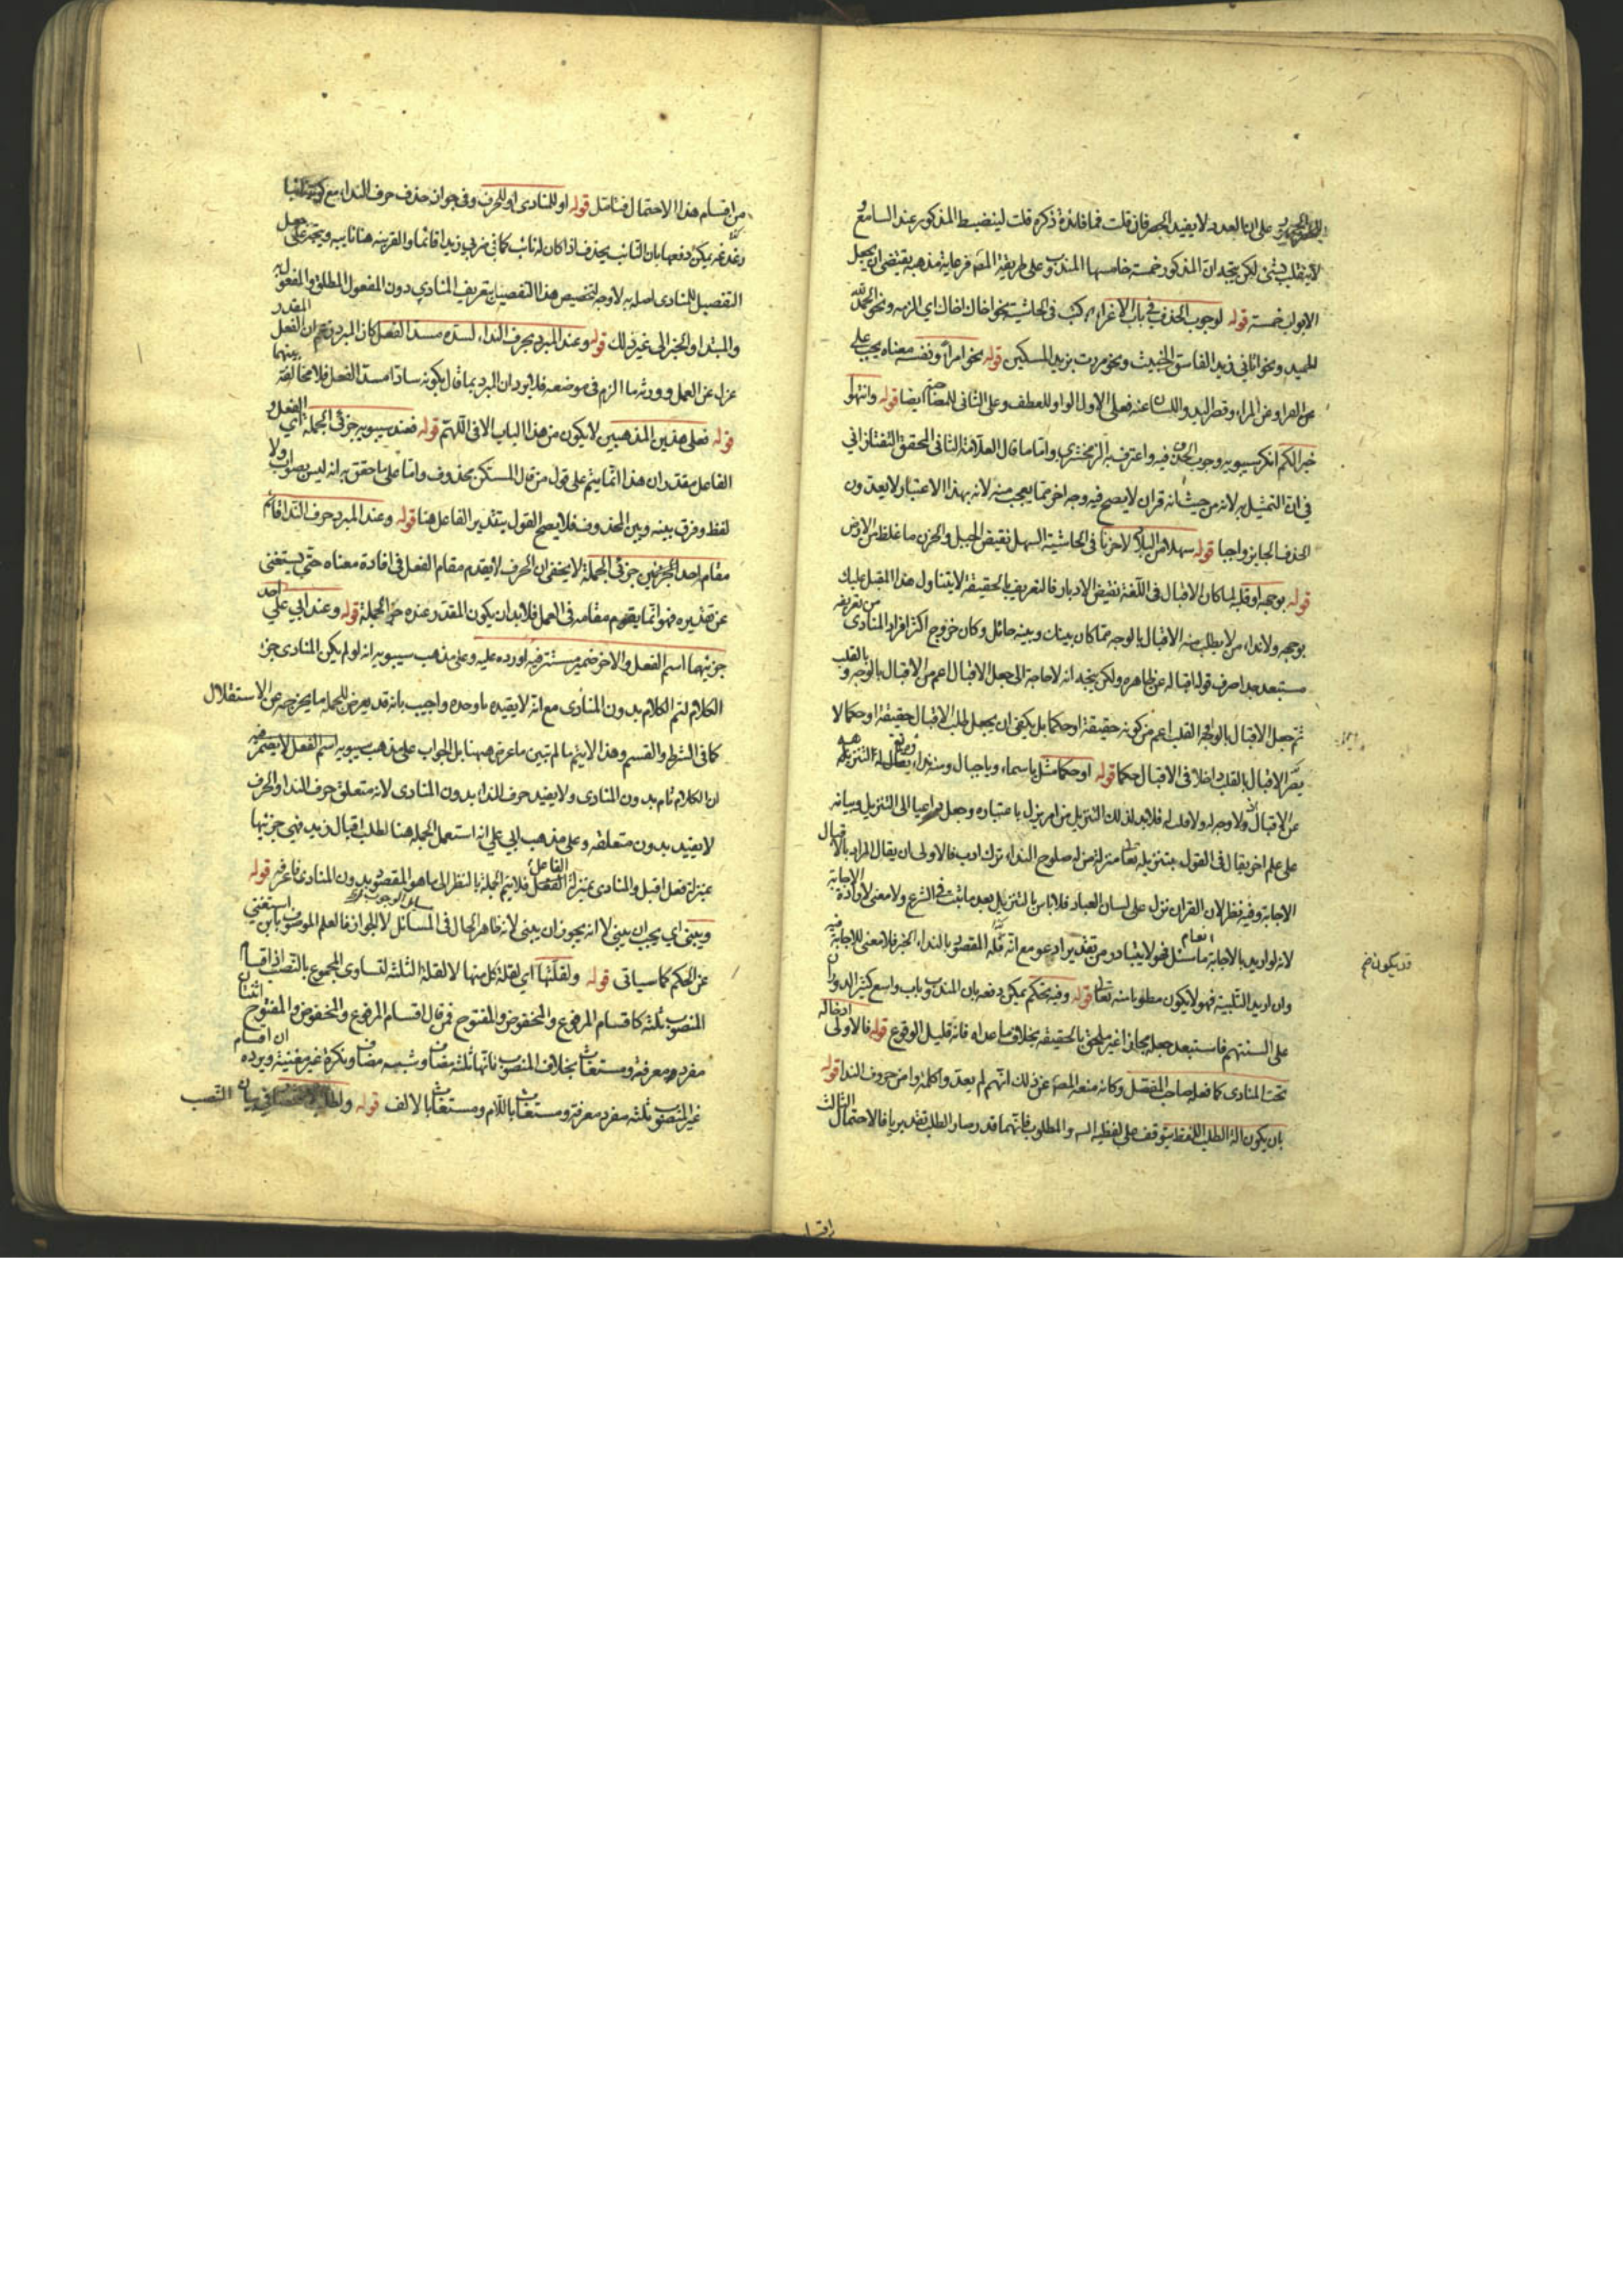 على ان العدد لا يفيد الحصر فان قلت فما فائدة ذكره قلت لينضبط المذكور عند السامع و
لا يتفلت شئ لكن يتجه ان المذكور خمسة خامسها المندوب وعلى طريقة المصنف فرعاية مذهبه يقتضى ان يجعل
الابواب خمسة قوله لوجوب الحذف فى باب الاغراء كتب فى الحاشية نحو اخاك اخاك اى الزمه ونحو الحمد لله
الحميد ونحو اتانى زيد الفاسق الخبيث ونحو مررت بزيد المسكين قوله نحو امرأ ونفسه معناه يجب على
عن المراء وقصر اليد واللسان عنه فعلى الاول الواو للعطف وعلى الثانى للمصاحبة ايضا قوله وانتهوا
خيرا لكم انكر سيبويه وجوب الحذف فيه واعترف به الزمخشرى واما ما قال العلامة الثانى المحقق التفتازانى
فى ان التمثيل به لانه من حيث انه قران لا يصح فيه وجه اخر مما يعجب منه لانه بهذا الاعتبار لا يعدون
الحذف الجايز واجبا قوله سهلا من البلاد لا حزنا فى الحاشية السهل نقيض الجبل والحزن ما غلظ من الارض
قوله بوجهه او قلبه لما كان الاقبال فى اللغة نقيض الادبار فالتعريف بالحقيقة لا يتناول هذا المقبل عليك
بوجهه ولا نداء من لا يطلب منه الاقبال بالوجه مما كان بينك وبينه حائل وكان خروج اكثر افراد المنادى من تعريفه
مستبعد جدا صرف قوله اقباله عن ظاهره ولكن يتجه انه لا حاجة الى جعل الاقبال اعم من الاقبال بالوجه وبالقلب
ثم جعل الاقبال بالوجه القلب اعم من كونه حقيقة او حكما بل يكفى ان يجعل طلب الاقبال حقيقة او حكما لا
الاقبال بالقلب داخلا فى الاقبال حكما قوله او حكما مثل يا سماء ويا جبال ومنه نداء
عن الاقبال ولا وجه له ولا قلب له فلا بد لذلك التنزيل من امر ينزل باعتباره وجعل الى التنزيل وبيانه
على علم اخر يقال فى القول بتنزيله تعالى منزلة من له صلوح النداء ترك ادب فالاولى ان يقال المراد بالاقبال
الاجابة وفيه نظر لان القران نزل على لسان العباد فلا باس بالتنزيل بعد ما ثبت فى الشرع ولا معنى لارادة الاجابة
لانه لو اريد بالاجابة ما سئل فهو لا يتبادر من تقدير ادعو مع انه المقصود بالنداء الخبر فلا معنى للاجابة فيه
وان اريد التلبية فهو لا يكون مطلوبا منه تعالى قوله وفيه تحكم يمكن دفعه بان المندوب باب واسع كثير الدوران
على السنتهم فاستبعد جعله مجازا غير ملحق بالحقيقة بخلاف ما عداه فانه قليل الوقوع قوله فالاولى ادخاله
تحت المنادى كما فعله صاحب المفصل وكانه منعه المصنف عن ذلك انهم لم يعدوا كلمة وا من حروف النداء قوله
بان يكون الة الطلب اللفظ يتوقف على لفظية والمطلوب فانهما قد وصار الطلب تقديريا فالاحتمال الثالث
قد يكون
من اقسام هذا الاحتمال فتامل قوله او للمنادى او للحرف وفى جواز حذف حرف النداء مع
يمكن دفعها بان النائب يحذف اذا كان له نائب كما فى ضربى زيدا قائما والقرينة هنا نايبه ويتجه على جعل
التفصيل للمنادى اصله به لا وجه لتخصيص هذا التفصيل بتعريف المنادى دون المفعول المطلق والمفعول له
والمبتدا والخبر الى غير ذلك قوله وعند المبرد بحرف النداء لسده مسد الفعل كان المبرد زعم ان الفعل المقدر
عزل عن العمل وورثه ما الزم فى موضعه فلا يرد ان المبرد يما قال بكونه سادا مسد الفعل فلا مخالفة بينهما
قوله فعلى هذين المذهبين لا يكون من هذا الباب الا فى اللهم قوله فعند سيبويه جزئى الجملة اى الفعل و
الفاعل مقدران هذا انما يتم على قول من قال المستكن محذوف واما على ما حقق به انه ليس بصواب ولا
لفظ وفرق بينه وبين المحذوف فلا يصح القول بتقدير الفاعل هنا قوله وعند المبرد حرف النداء قائم
مقام احد الجزئين جزئى الجملة لا يخفى ان الحرف لا يقدم مقام الفعل فى افادة معناه حتى يستغنى
عن تقديره فهو انما يقوم مقامه فى العمل فلا بد ان يكون المقدر عنده جزء الجملة قوله وعند ابى على احد
جزئيهما اسم الفعل والاخر ضمير مستتر فيه اورده عليه وعلى مذهب سيبويه انه لو لم يكن المنادى جزء
الكلام لتم الكلام بدون المنادى مع انه لا يفيده يا وحده واجيب بانه قد يعرض للجملة ما يخرجه عن الاستقلال
كما فى الشرط والقسم وهذا لا يتم ما لم يتبين ما عرض ههنا بل الجواب على مذهب سيبويه اسم الفعل لا يضمر فيه
ان الكلام تام بدون المنادى ولا يفيد حرف النداء بدون المنادى لانه متعلق حرف النداء والحرف
لا يفيد بدون متعلقه وعلى مذهب ابى على انه استعمل الجملة هنا لطلب اقبال زيد فهى جزئيها
بمنزلة فعل اقبل والمنادى بمنزلة الفاعل فلا يتم الجملة بالنظر الى ما هو المقصود بدون المنادى فاعرفه قوله
ويبنى اى يجب ان يبنى لا انه يجوز ان يبنى لانه ظاهر الحال فى المسائل لا الجواز فالعلم الموصوف بابن استغنى
عن الحكم كما سياتى قوله ولقلتها اى لقلة كل منها لا لقلة الثلثة لتساوى المجموع بالنصب اذ اقسام
المنصوب ثلثة كاقسام المرفوع والمخفوض والمفتوح فمن قال اقسام المرفوع والمخفوض والمفتوح اثنان
مفرد ومعرفة ومستغاث بخلاف المنصوب فانها ثلثة مضاف وشبيه مضاف ونكرة غير معينة ويرده ان اقسام
غير المنصوب ثلثة مفرد معرفة ومستغاث باللام ومستغاث بالالف قوله فى بيان النصب